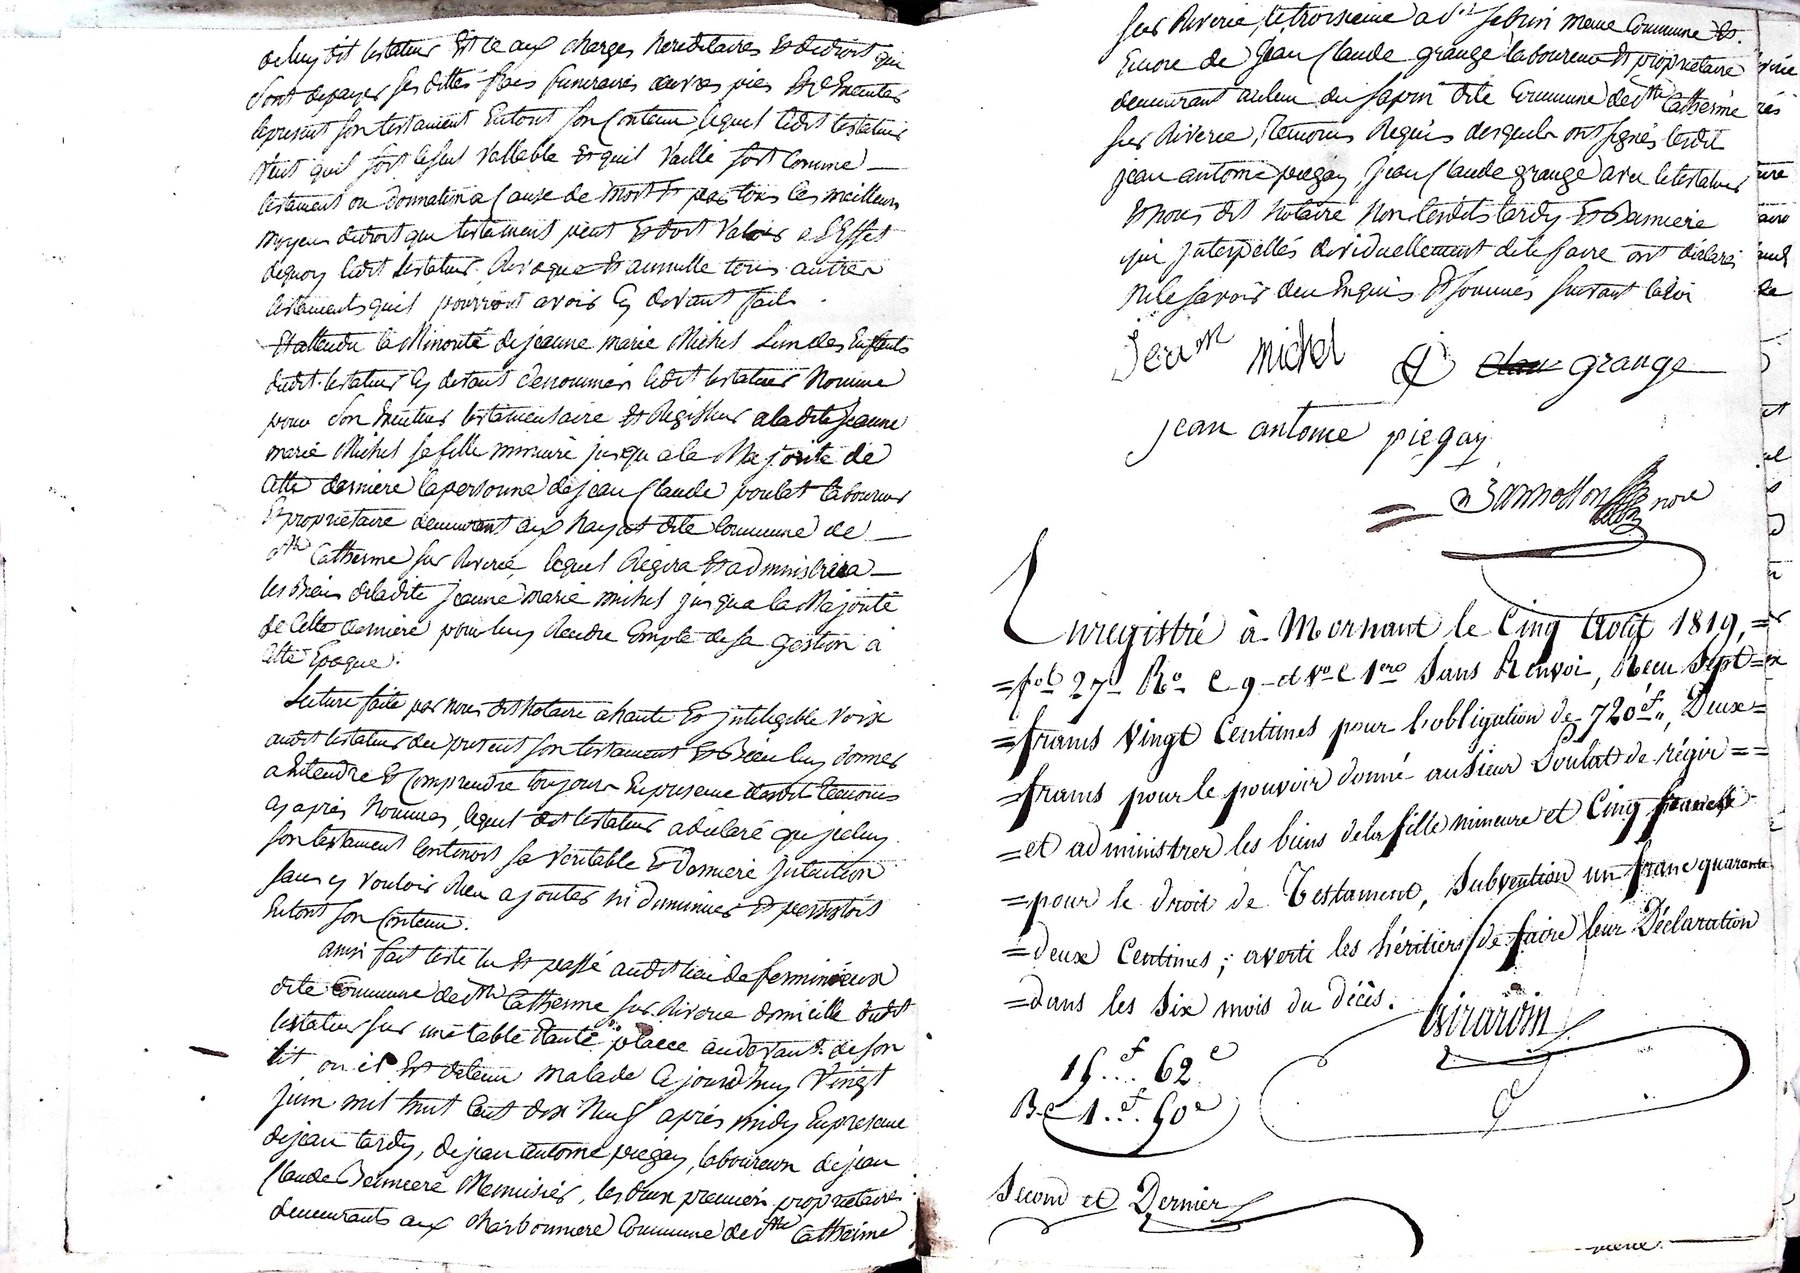 de luy dit testateur Et ce aux charges hereditaires Et de droit qui
sont de payer ses dittes frais funeraires œuvres pies Et d'Executer
le present son testament En tout son Contenu lequel ledit testateur
Veut quil soit le seul Vallable Et quil Vaille soit Comme
testament ou donnation a Cause de mort Et par tous les meilleurs
moyens de droit que testament peut Et doit Valoir a L'Effet
de quoy ledit testateur Revoque Et annulle tous autres
testaments quil pourroit avoir Cy devant fait.
Et attendu la Minorité de jeanne marie Michel L'un des Enfants
dudit testateur Cy devant denommés ledit testateur Nomme
pour son Executeur testamentaire Et Regisseur a la dite jeanne
marie Michel sa fille mineure jusqu a la Majorité de
Cette derniere la personne de jean Claude poulat laboureur
Et proprietaire demeurant aux hayes dite Commune de
Ste Catherine sur Riverie, lequel Regira Et administrera
les Biens de la dite jeanne marie michel jusqu a la Majorité
de Cette derniere pour luy Rendre Compte de sa gestion a
Cette Epoque.
Lecture faite par nous dit Notaire a haute Et jntelegible Voix
audit testateur du present son testament Et Bien luy donner
a Entendre Et Comprendre toujours En presence desdits temoins
cy après Nommés, lequel dit testateur a déclaré que jceluy
son testament Contenoit sa Veritable Et Derniere Jntention
sans y Vouloir Rien ajouter ni diminuer Et persistoit
En tout son Contenu.
ainsi fait testé lu Et passé audit lieu de
dite Commune de Ste Catherine sur Riverie domicille dudit
testateur sur une table placée au devant de son
lit ou il Est detenu malade Ce jourd'huy Vingt
Juin mil huit Cent dix Neuf après midy En presence
de jean tardy, de jean antoine piegay, laboureurs de jean
Claude Menuisier, les deux premiers proprietaires
demeurants aux charbonniere Commune de Ste Catherine
sur Riverie, le troisieme a St meme Commune Et
Encore de jean Claude grange laboureur Et proprietaire
demeurant au lieu du sapin dite Commune de Ste Catherine
sur Riverie, temoins Requis desquels ont signés ledit
jean antoine piegay, jean Claude grange avec le testateur
Et nous dit Notaire Non lesdits tardy Et
qui Jnterpellés dividuellement de le faire ont déclaré
Ne le savoir deu Enquis Et sommés suivant la loi
michel grange
jean antoine piegay
nore
Enregistré à Mornant le Cinq Août 1819,=
=fol 27 Ro C 9 et Vo C 1ere Sans Renvoi, Recu Sept=
=francs vingt Centimes pour l'obligation de 720f,, Deux=
=francs pour le pouvoir donné au Sieur Poulat de régir==
=et administrer les biens de la fille mineure et Cinq francs
=pour le droit de Testament, Subvention un franc quarante
=deux Centimes; averti les héritiers de faire leur Déclaration
=dans les Six mois du décès.
Girardin
15f... 62c
1f.. 50c
Second et Dernier